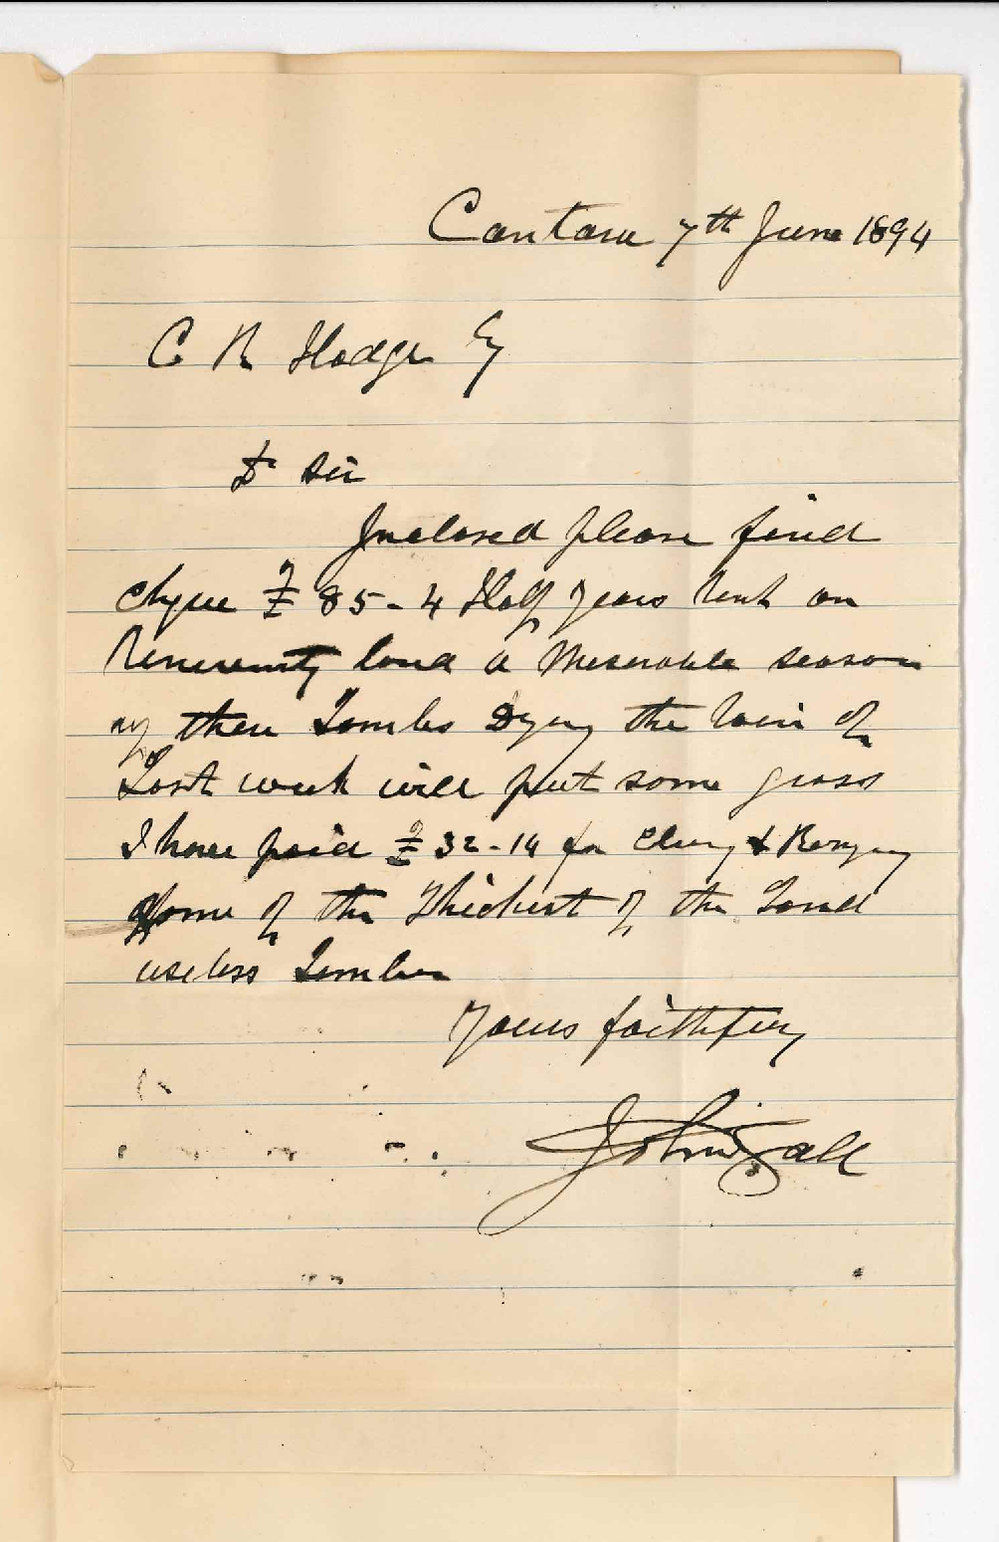 Cantara 7th June 1894
C R Hodge Esq
Dr Sir
Inclosed please find
cheque £ 85-4 Half years Rent on
University land a Meserable season
my these Lambs Dying the Rain of
Last week will put some grass
I have paid £ 32-14 for &
some of the Thickest of the Land
useless Timber
Yours faithfuly
John Gall